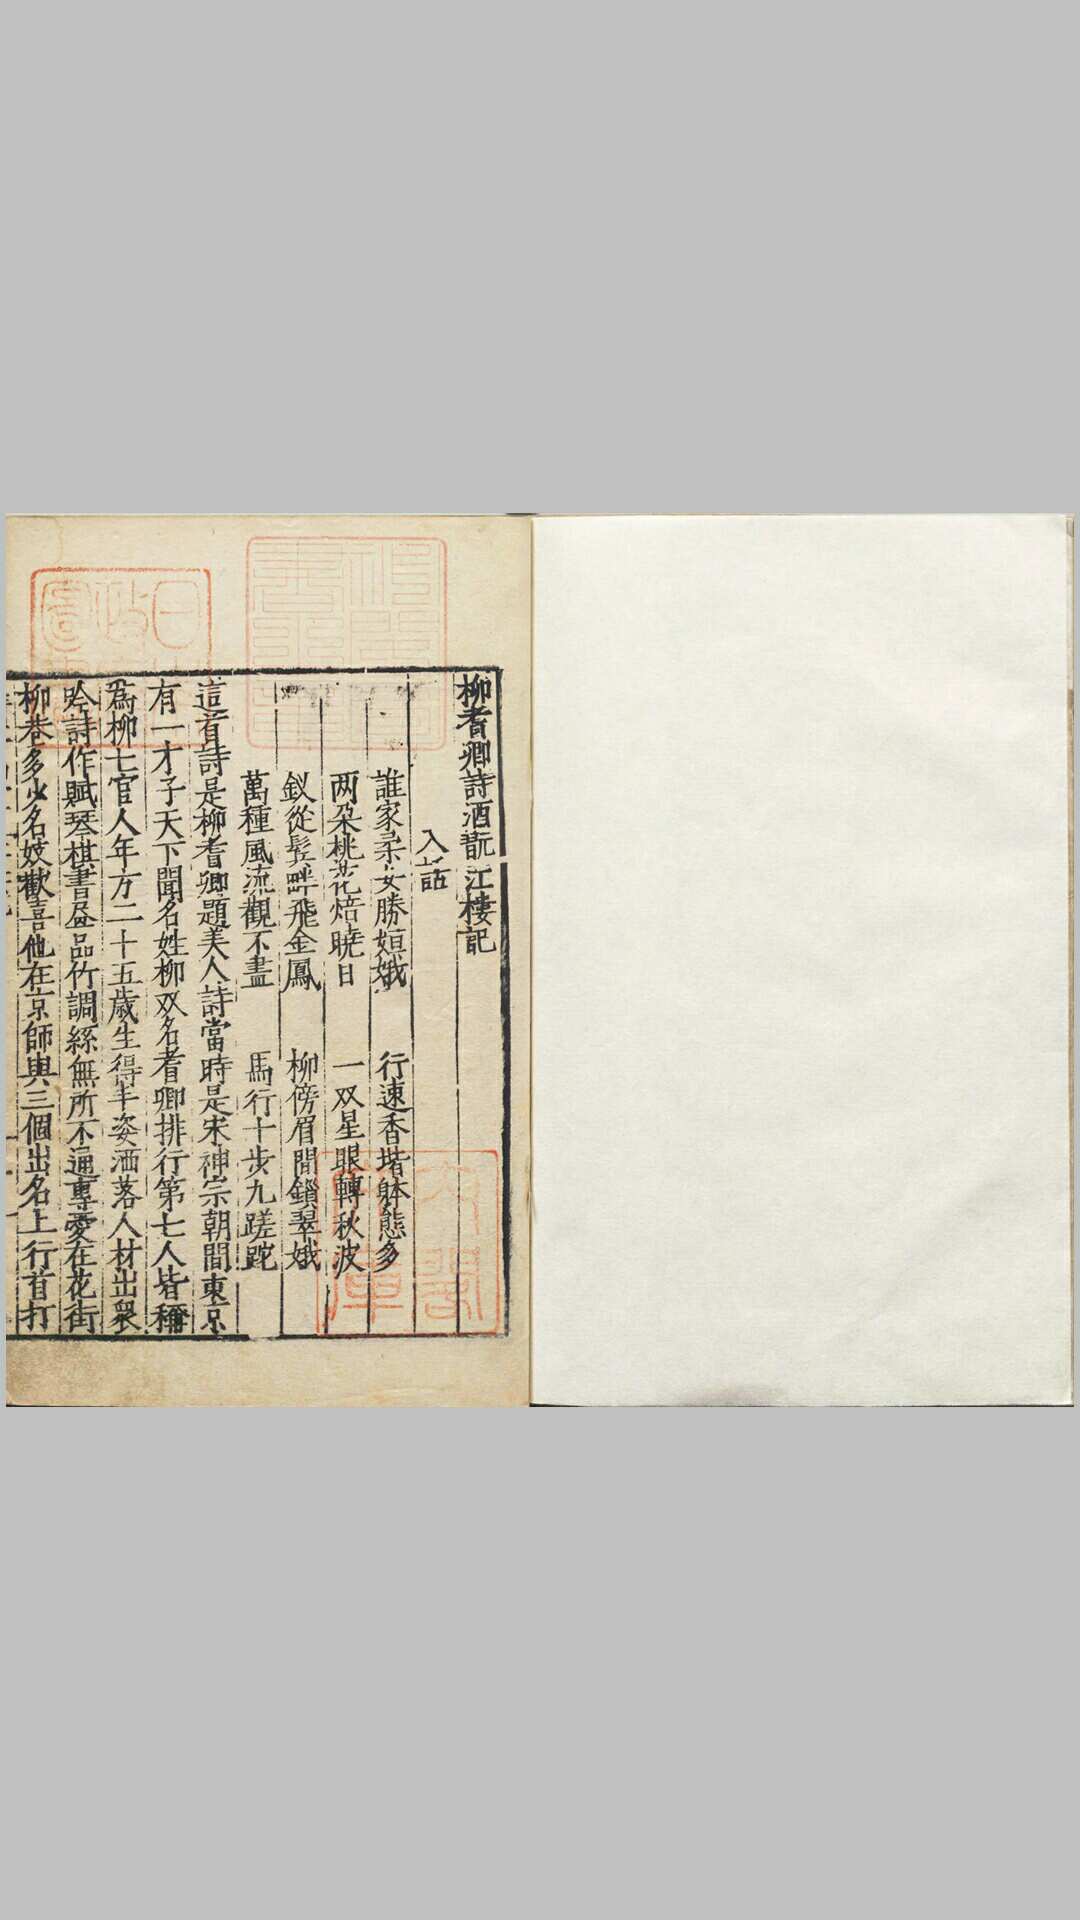 柳耆卿詩酒翫江樓記
入話
誰家柔女勝姮娥 行速香堦躰態多
两朶桃花焙曉日 一双星眼轉秋波
釵從鬂畔飛金鳳 柳傍眉間鎖翠娥
萬種風流觀不盡 馬行十步九蹉跎
這首詩是柳耆卿題美人詩當時是宋神宗朝間東京
有一才子天下聞名姓柳双名耆卿排行第七人皆稱
為柳七官人年方二十五歲生得丰姿洒落人材出衆
吟詩作賦琴棋書畫品竹調絲無所不通專愛在花街
柳巷多少名妓歡喜他在京師與三個出名上行首打